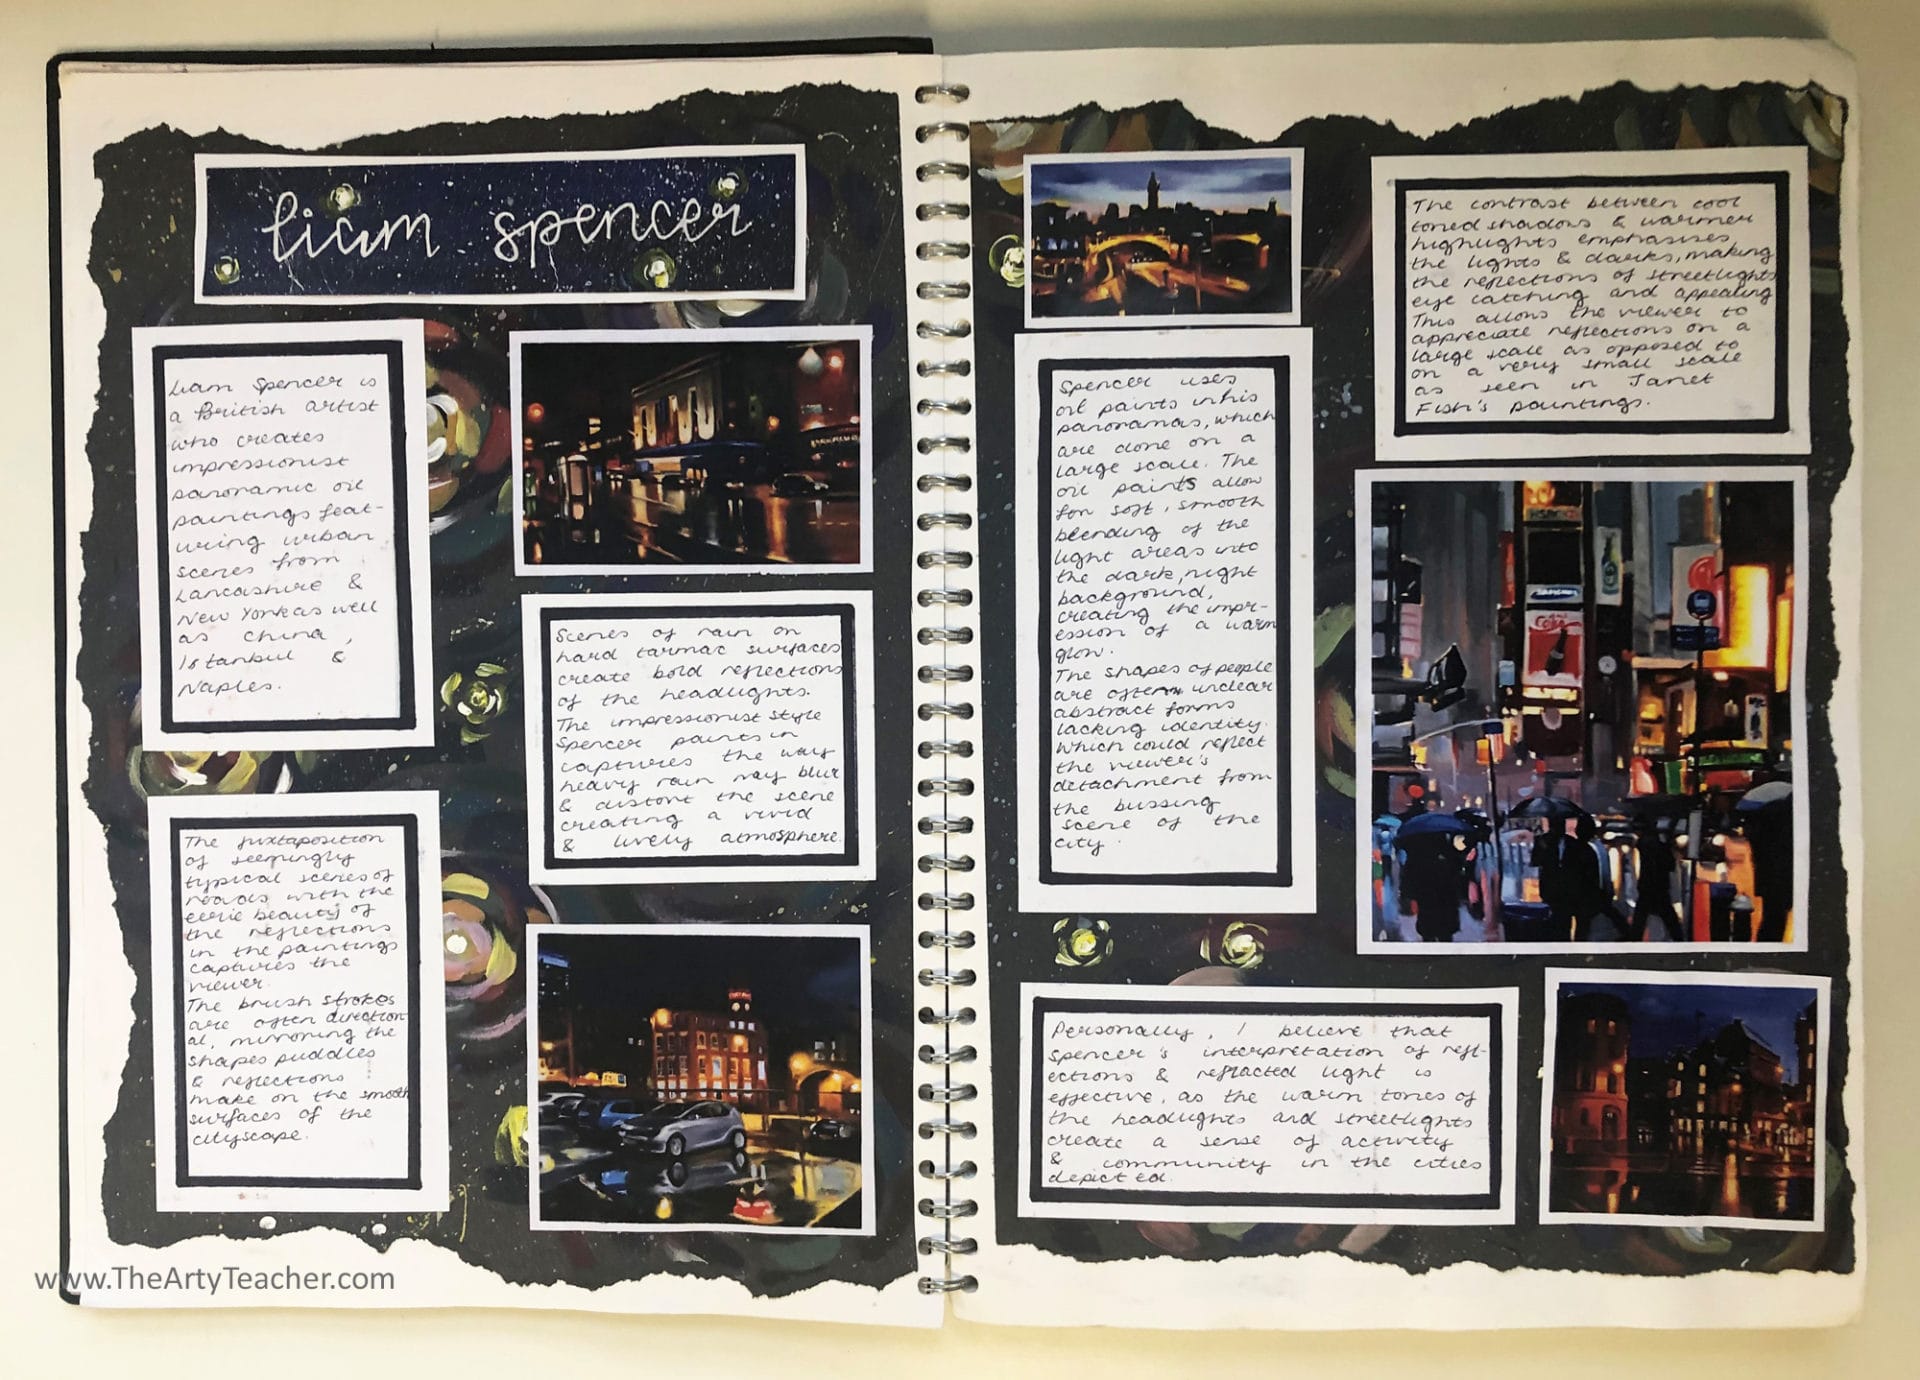 liam spencer
Liam Spencer is
a British artist
who creates
impressionist
panoramic oil
paintings feat-
uring urban
scenes from
Lancashire &
New York as well
as China,
Istanbul &
Naples.
The juxtaposition
of seemingly
typical scenes of
roads with the
eerie beauty of
the reflections
in the paintings
captures the
viewer.
The brush strokes
are often direction
al, mirroring the
shapes puddles
& reflections
make on the smooth
surfaces of the
cityscape.
Scenes of rain on
hard tarmac surfaces
create bold reflections
of the headlights.
The impressionist style
Spencer paints in
captures the way
heavy rain may blur
& distort the scene
creating a vivid
& lively atmosphere.
Spencer uses
oil paints in his
panoramas, which
are done on a
large scale. The
oil paints allow
for soft, smooth
blending of the
light areas into
the dark, night
background,
creating the impr-
ession of a warm
glow.
The shapes of people
are often unclear
abstract forms
lacking identity.
Which could reflect
the viewer's
detachment from
the bussing
scene of the
city.
The contrast between cool
toned shadows & warmer
highlights emphasises
the lights & darks, making
the reflections of streetlights
eye catching and appealing
This allows the viewer to
appreciate reflections on a
large scale as opposed to
on a very small scale
as seen in Janet
Fish's paintings.
SAMSUNG
Coke
Personally, I believe that
Spencer's interpretation of refl-
ections & refracted light is
effective, as the warm tones of
the headlights and streetlights
create a sense of activity
& community in the cities
depicted.
www.TheArtyTeacher.com